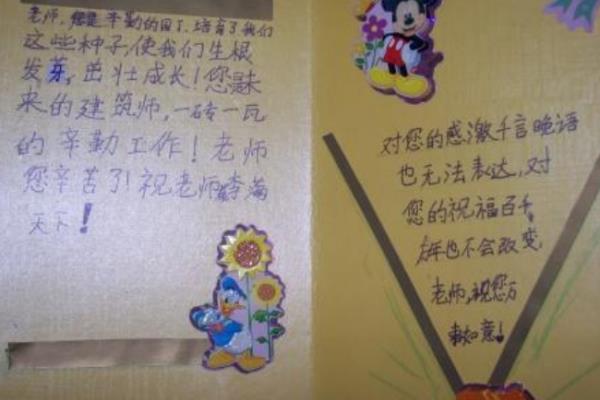 老师,您是辛勤的园丁,培育了我们
这些种子,使我们生根
发芽,茁壮成长!您是未
来的建筑师,一砖一瓦
的辛勤工作!老师
您辛苦了!祝老师李满
天下!
对您的感激千言晚语
也无法表达,对
您的祝福百千
年也不会改变,
老师,祝您万
事如意!